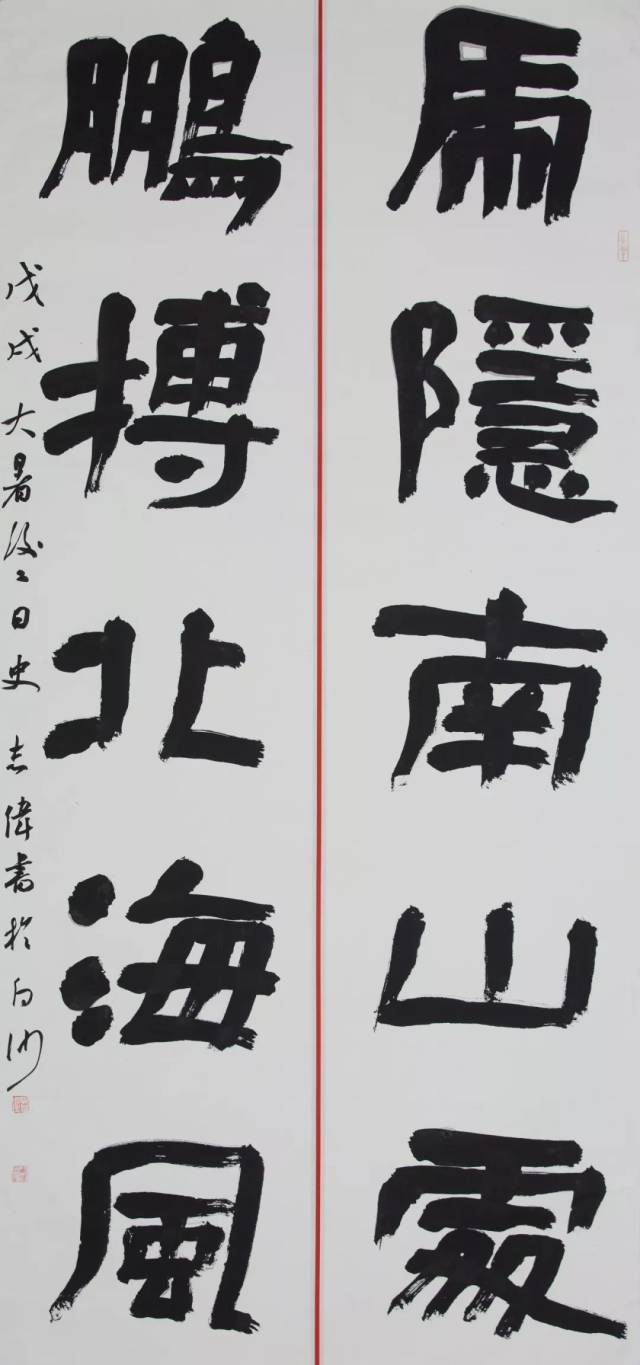 乕隱南山霧
鵬搏北海風
戊戌大暑後二日史志偉書於白沙